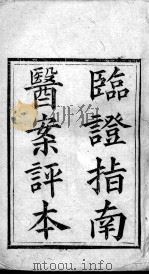 臨證指南
醫案評本
mtoou.info